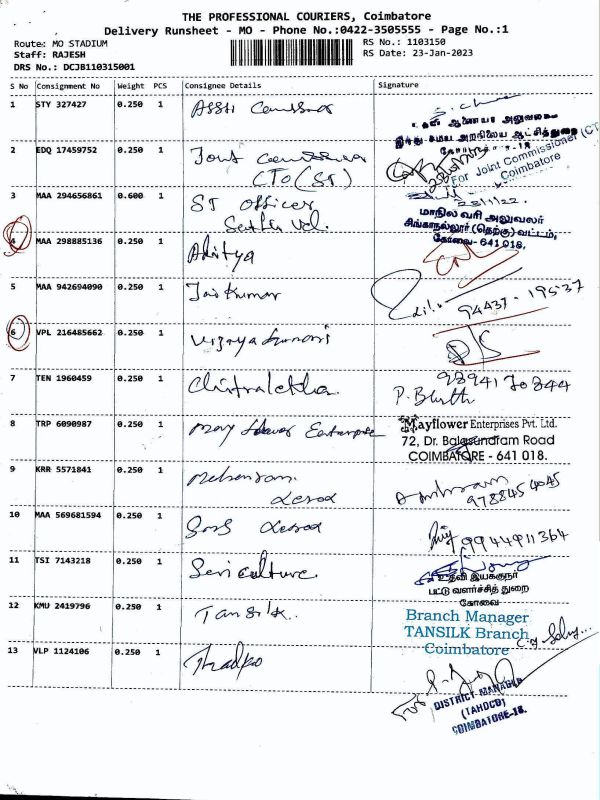 THE PROFESSIONAL COURIERS, Coimbatore
Delivery Runsheet - MO - Phone No.:0422-3505555 - Page No.:1
Route: MO STADIUM
Staff: RAJESH
DRS No.: DCJB110315001
RS No.: 1103150
RS Date: 23-Jan-2023
S No Consignment No Weight PCS Consignee Details Signature
1 STY 327427 0.250 1 Asst
உதவி ஆணையர் அலுவலகம்
இந்து சமய அறநிலைய ஆட்சித்துறை
2 EDQ 17459752 0.250 1 Joint
CTO (ST)
For Joint Commissioner (CT)
Coimbatore
3 MAA 294656861 0.600 1 ST Officer
மாநில வரி அலுவலர்
சிங்காநல்லூர் (தெற்கு) வட்டம்,
கோவை - 641 018.
4 MAA 298885136 0.250 1 Aditya
5 MAA 942694090 0.250 1 Jaikumar
94437-19537
6 VPL 216485662 0.250 1 Vijayakumari
7 TEN 1960459 0.250 1 Chitralekha
98941 70844
8 TRP 6090987 0.250 1 May Enterprise
Mayflower Enterprises Pvt. Ltd.
72, Dr. Balasundram Road
COIMBATORE - 641 018.
9 KRR 5571841 0.250 1
978845 4045
10 MAA 569681594 0.250 1
9944911364
11 TSI 7143218 0.250 1 Sericulture
உதவி இயக்குநர்
பட்டு வளர்ச்சித் துறை
கோவை
12 KMU 2419796 0.250 1 Tansilk
Branch Manager
TANSILK Branch
Coimbatore
13 VLP 1124106 0.250 1 Thadko
For
DISTRICT MANAGER
(TAHDCO)
COIMBATORE-18.